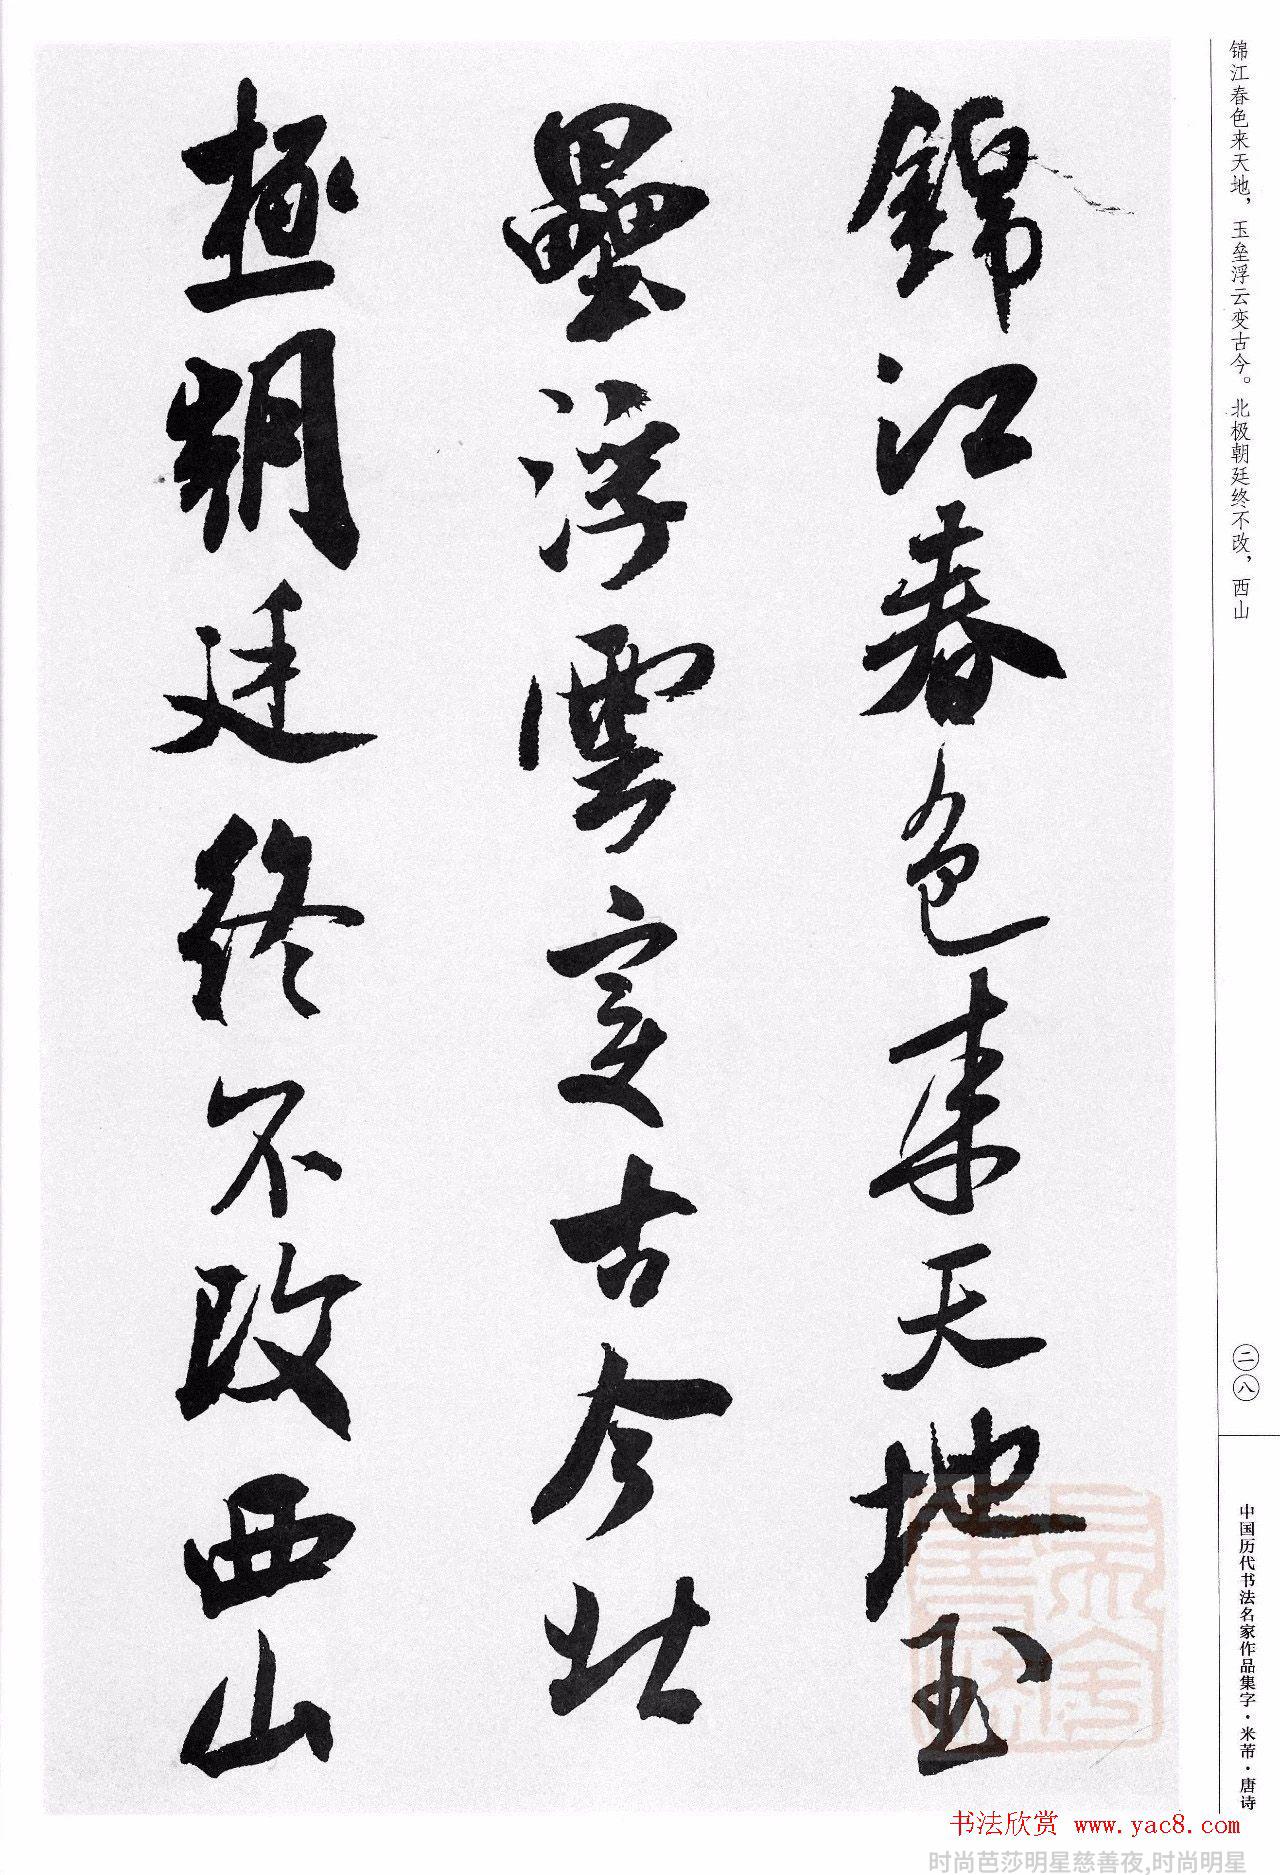 锦江春色来天地，玉垒浮云变古今。北极朝廷终不改，西山
錦江春色来天地玉
壘浮雲変古今北
極朝廷終不改西山
二八
中国历代书法名家作品集字·米芾·唐诗
书法欣赏 www.yac8.com
时尚芭莎明星慈善夜,时尚明星